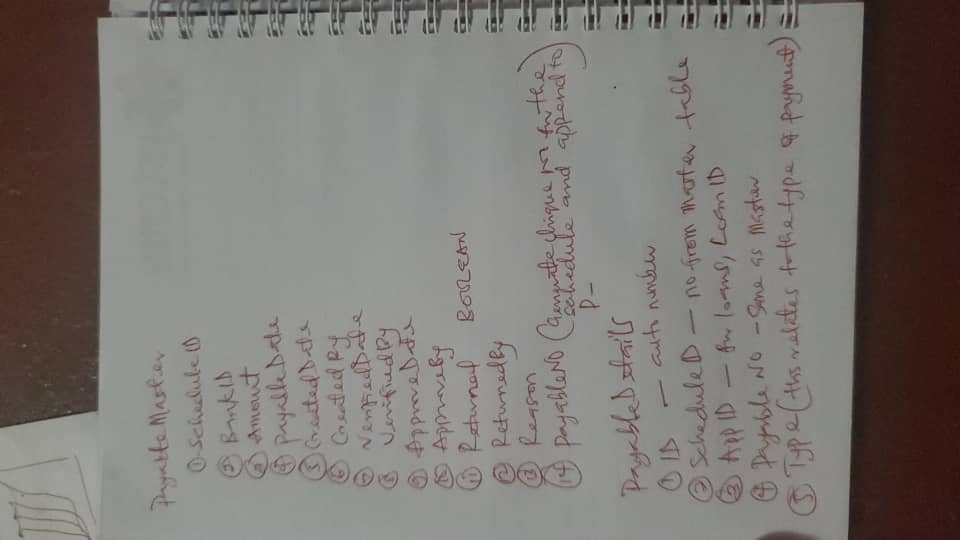 PayableMaster
① ScheduleID
② BankID
③ Amount
④ PayableDate
⑤ CreatedDate
⑥ CreatedBy
⑦ VerifiedDate
⑧ VerifiedBy
⑨ ApproveDate
⑩ ApproveBy
⑪ Returned BOOLEAN
⑫ ReturnedBy
⑬ Reason
⑭ PayableNO (Generate Unique no for the
schedule and append to
P-
PayableDetails
① ID - auto number
② ScheduleID - no from master table
③ AppID - for loans, LoanID
④ PayableNO - Same as Master
⑤ Type (this relates to the type of payment)